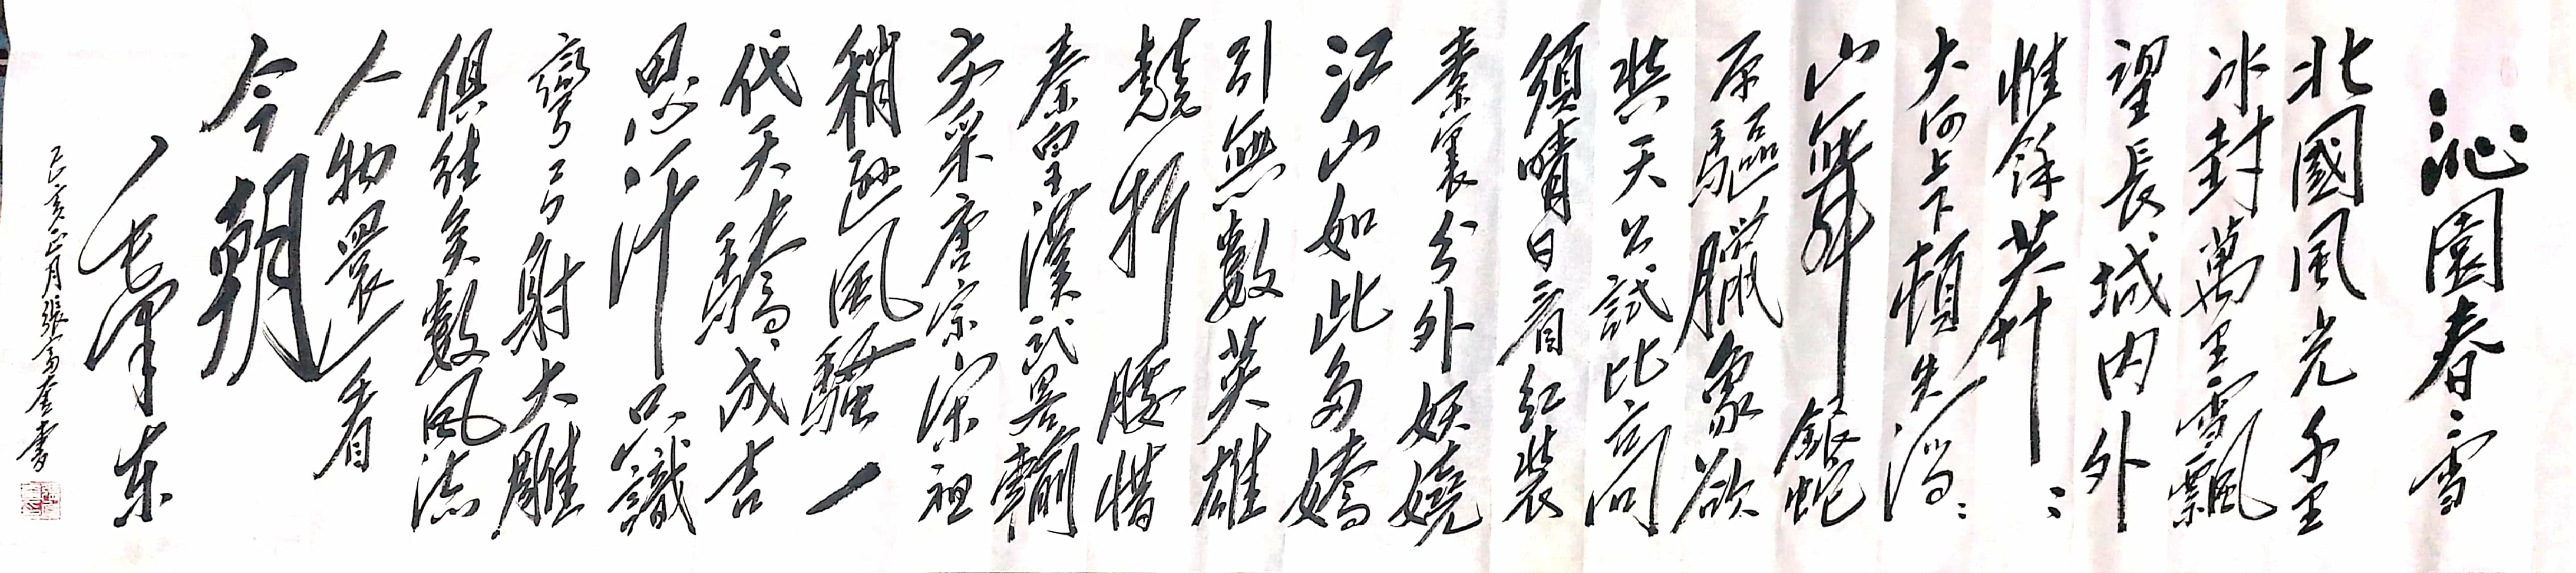 沁園春:雪
北國風光千里
冰封萬里雪飄
望長城内外
惟餘莽〻
大河上下頓失滔〻
山舞銀蛇
原驅臘象欲
與天公試比高
須晴日看紅裝
素裹分外妖嬈
江山如此多嬌
引無數英雄
競折腰惜
秦皇漢武畧輸
文采唐宗宋祖
稍遜風騷一
代天驕成吉
思汗只識
彎弓射大雕
俱往矣數風流
人物還看
今朝
毛澤东
己亥正月張富奎書